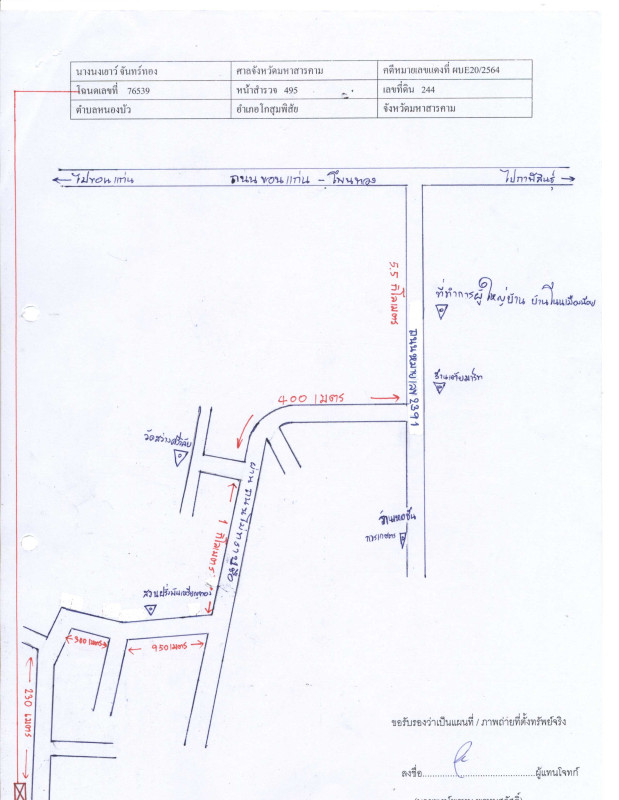 นางนงเยาว์ จันทร์ทอง ศาลจังหวัดมหาสารคาม คดีหมายเลขแดงที่ ผบE20/2564
โฉนดเลขที่ 76539 หน้าสำรวจ 495 เลขที่ดิน 244
ตำบลหนองบัว อำเภอโกสุมพิสัย จังหวัดมหาสารคาม
ไปขอนแก่น ถนน ขอนแก่น - โพนทอง ไปกาฬสินธุ์
5.5 กิโลเมตร
ที่ทำการผู้ใหญ่บ้าน บ้านโนนเมืองน้อย
ถนนหมายเลข 2391
400 เมตร
วัดสว่าง
ถนนไม่ทราบชื่อ
1 กิโลเมตร
การเกษตร
300 เมตร
950 เมตร
230 เมตร
ขอรับรองว่าเป็นแผนที่ / ภาพถ่ายที่ตั้งทรัพย์จริง
ลงชื่อ........................................ผู้แทนโจทก์